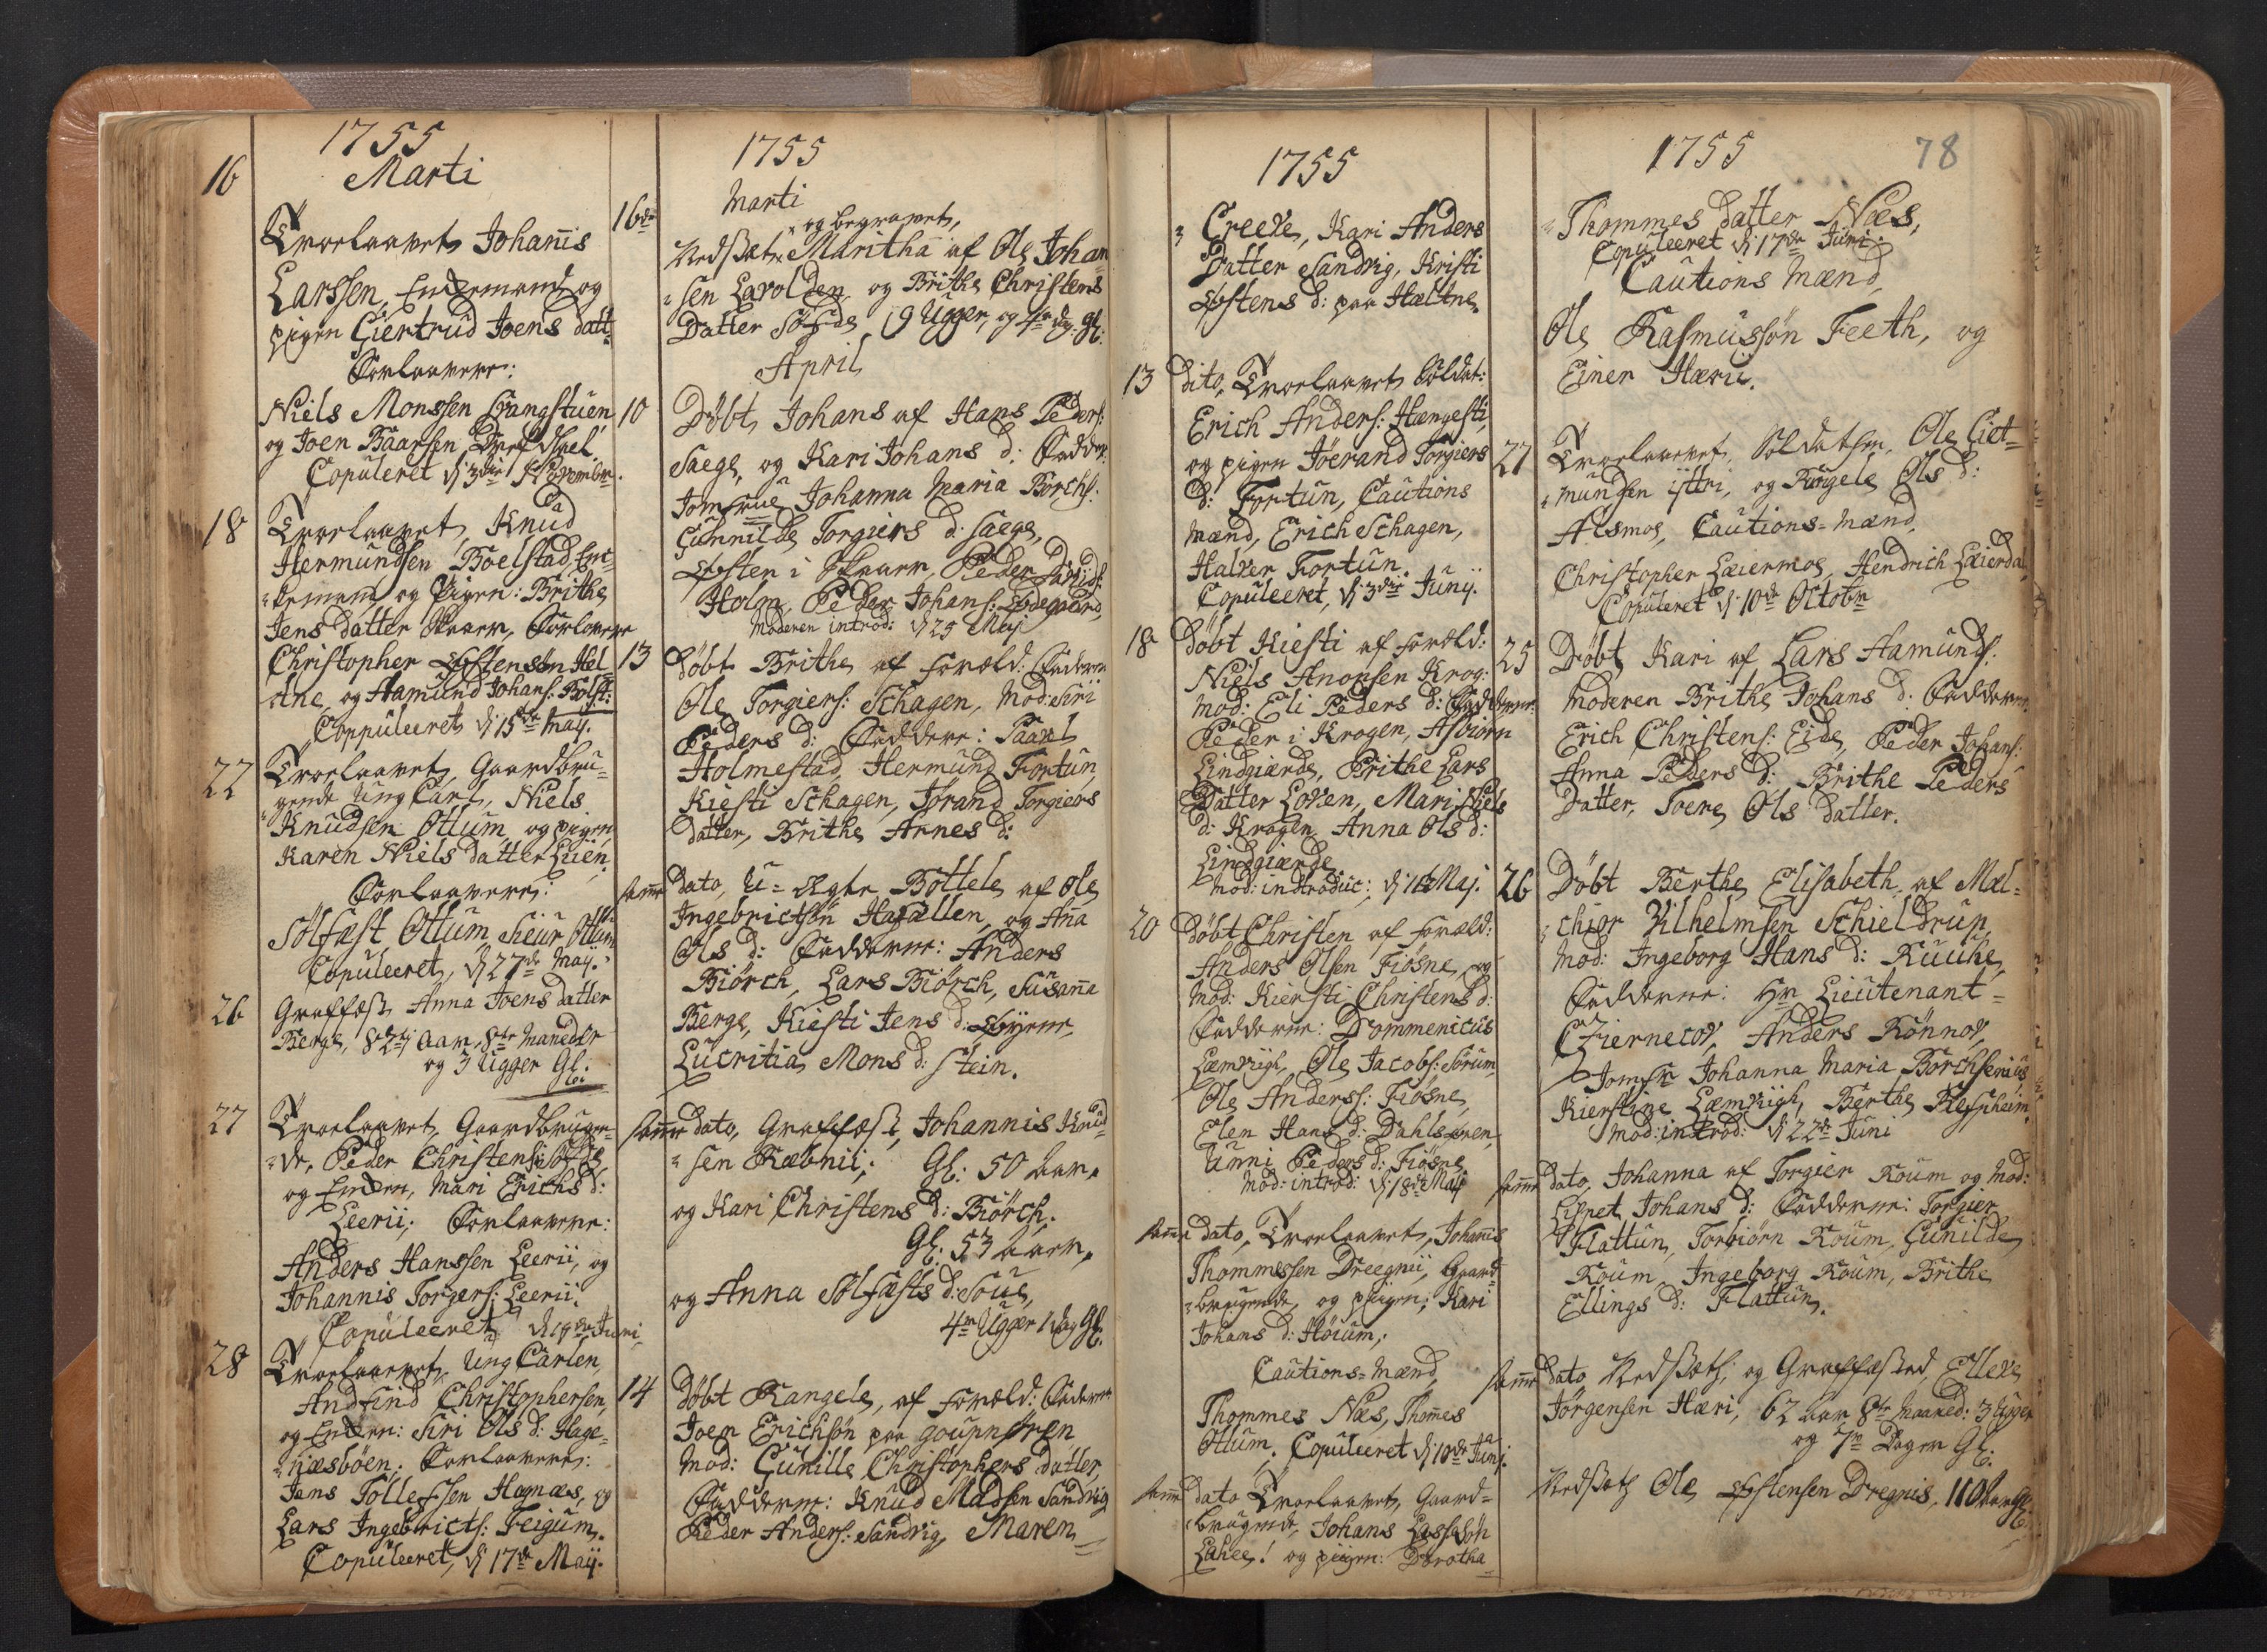 1755
Marti
16
Troelaavet Johanis
Larssen, Enckemand og
pigen Giertrud Joens datt:
Forlaavere:
Niels Monssen Krangstuen
og Joen Baarsen
Copuleret d: 3die November.
18
Troelaavet, Knud
Hermundsen Bolstad, Enc-
kemand og Pigen: Brithe
Jens datter Skaar, Forlovere
Christopher Østensøn Hel-
tne, og Aamund Johans: Bolst:
Coppuleeret d: 15de May.
22
Troelaavet, Gaardbru-
gende Ung Carl, Niels
Knudsen Ottum og pigen
Karen Niels datter Lien.
Forlaavere:
Sølfæst Ottum Siur Ottum
Copuleeret, d: 27de May.
26
Graffæst Anna Joens datter
Berge, 82 Aar, 8te Maneder
og 3 Ugger Gl:
27
Troelaavet, Gaardbrugen-
de, Peder Christens:
og Encken, Mari Erichs d:
Leerii, Forlaavere:
Anders Hanssen Leerii, og
Johannis Torgers: Leerii.
Copuleeret d: 19de Juni
28
Troelaavet, Ung Carlen,
Andfind Christophersen,
og Encken: Siri Ols d: Hage-
næsbøen, Forlaavere:
Jens Tollefsen Hagnæs, og
Lars Ingebricts: Feigum.
Copuleeret, d: 17de Maij.
1755
Marti
16de
og begravet,
Nedsat Maritha af Ole Johan-
sen Qvolden og Brithe Christens
Datter 19 Ugger, og 4re dag: Gl:
April
10
Døbt Johans af Hans Peders:
Saege, og Kari Johans d: Fadder:
Jomfrue Johanna Maria Borchs:
Gunnilde Torgiers d: Saege,
Østen i Skaar, Peder Davids:
Holm, Peder Johans: Ødegaard,
Moderen introd: d 25 Maj
13
Døbt Brithe af Foræld: Faderen
Ole Torgiers: Schagen, Mod: Siri
Peders d: Faddere: Paavl
Holmestad, Hermund Fortun,
Kiesti Schagen, Jorand Torgiers
datter, Brithe Arnes d:
samme dato, U-Ægte Bottele af Ole
Ingebrictsøn Hafællen, og Aña
Ols d: Fadderne: Anders
Biörch, Lars Biörch, Susanna
Berge, Kiesti Jens d:
Lucritia Mons d: Stein.
samme dato, Graffæst, Johannis Knud-
sen Ræbnii; Gl: 50 Aar.
og Kari Christens d: Biörch.
Gl: 53 Aar.
og Anna Sølfæsts d:
4re Ugger 1 dag Gl:
14
Døbt Rangele, af Foræld: Faderen
Joen Erichsøn paa Goupnøren
Mod: Gunille Christophers datter,
Fadderne: Knud Madsen Sandvig
Peder Anders: Sandvig, Maren
1755
Kreeke, Kari Anders
Datter Sandvig, Kristi
Østens d: paa Hæltne
13
Dito, Troelaavet Soldat:
Erich Anders: Hængesti,
og pigen Jöerand Torgiers
d: Fortun, Cautions
Mænd, Erich Schagen,
Halvor Fortun.
Copuleeret, d: 3die Junij.
18
Døbt Kiesti af Foræld:
Niels Anorsen Krog:
Mod: Eli Peders d: Fadderne:
Peder i Krogen, Asbiørn
Lindgiærde, Brithe Lars
Datter Loven, Mari Niels
d: Krogen, Anna Ols d:
Lindgiærde
Mod: introduc: d: 16 Maj.
20
Døbt Christen af Foræld:
Anders Olsen Fiösne, og
Mod: Kiersti Christens d:
Fadderne: Dommenicus
Læmvigh, Ole Jacobs: Sorum,
Ole Anderss: Fiøsne,
Elen Hans d: Dahlsøren,
Unni Peders d: Fiøsne,
Mod: introd: d: 18de Maij
samme dato, Troelaavet, Johanis
Thommessen Dreegnii, Gaard-
brugende og pigen: Kari
Johans d: Høium,
Cautions-Mænd,
Thommes Næs, Thomes
Ottum. Copuleeret d: 10de Junj.
samme dato Troelaavet, Gaard-
brugende, Johans Lassesøn
Lahee! og pigen: Dorotha
1755
78
Thommes datter Næs,
Copuleeret d: 17de Juni.
Cautions Mænd,
Ole Rasmussøn Feeth, og
Einer Hærii.
27
Troelaavet, Soldaten, Ole Giet-
mundsen iffri, og Rangele Ols d:
Alsmoe, Cautions-Mænd,
Christopher Leiermoe, Hendrich Leierdal
Copuleret d: 10de Octobr
25
Døbt Kari af Lars Aamunds:
Moderen Brithe Johans d: Fadderne
Erich Christens: Eide, Peder Johans:
Anna Peders d: Brithe Peders
Datter, Toere Ols datter.
26
Døbt Berthe Elisabeth af Mæl-
chior Vilhelmsen Schieldrup
Mod: Ingeborg Hans d:
Fadderne: Hr Lieutenant
Anders Rönnov,
Jomfr Johanna Maria Borchsenius
Kierstine Læmvigh, Berthe
Mod: introd: d: 22de Juni
samme dato, Johanna af Torgier Roum og Mod:
Lispet Johans d: Fadderne: Torgier
Flattun, Torbiørn Roum, Gunilde
Roum, Ingeborg Roum, Brithe
Ellings d: Flattun.
samme dato Nedsat, og Graffæsted Elleve
Jørgensen Hæri, 62 Aar 8te Maaned: 3 Ugger
og 7v Dager Gl:
Nedsat Ole Østensen Dregnis, 110 Aar Gl: